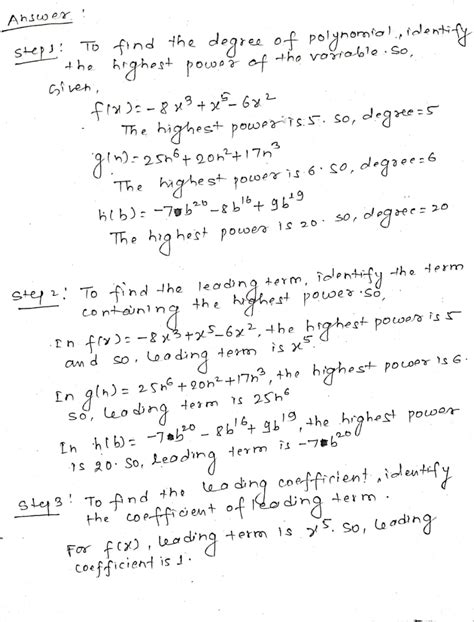 Answer :
Step 1: To find the degree of polynomial, identify
the highest power of the variable. So,
Given,
f(x) = -8x³ + x⁵ - 6x²
The highest power is 5. So, degree = 5
g(n) = 25n⁶ + 20n² + 17n³
The highest power is 6. So, degree = 6
h(b) = -7b²⁰ - 8b¹⁶ + 9b¹⁹
The highest power is 20. So, degree = 20
Step 2: To find the leading term, identify the term
containing the highest power. So,
In f(x) = -8x³ + x⁵ - 6x², the highest power is 5
and so, leading term is x⁵.
In g(n) = 25n⁶ + 20n² + 17n³, the highest power is 6.
So, leading term is 25n⁶
In h(b) = -7b²⁰ - 8b¹⁶ + 9b¹⁹, the highest power
is 20. So, leading term is -7b²⁰
Step 3: To find the leading coefficient, identify
the coefficient of leading term.
For f(x), leading term is x⁵. So, leading
coefficient is 1.